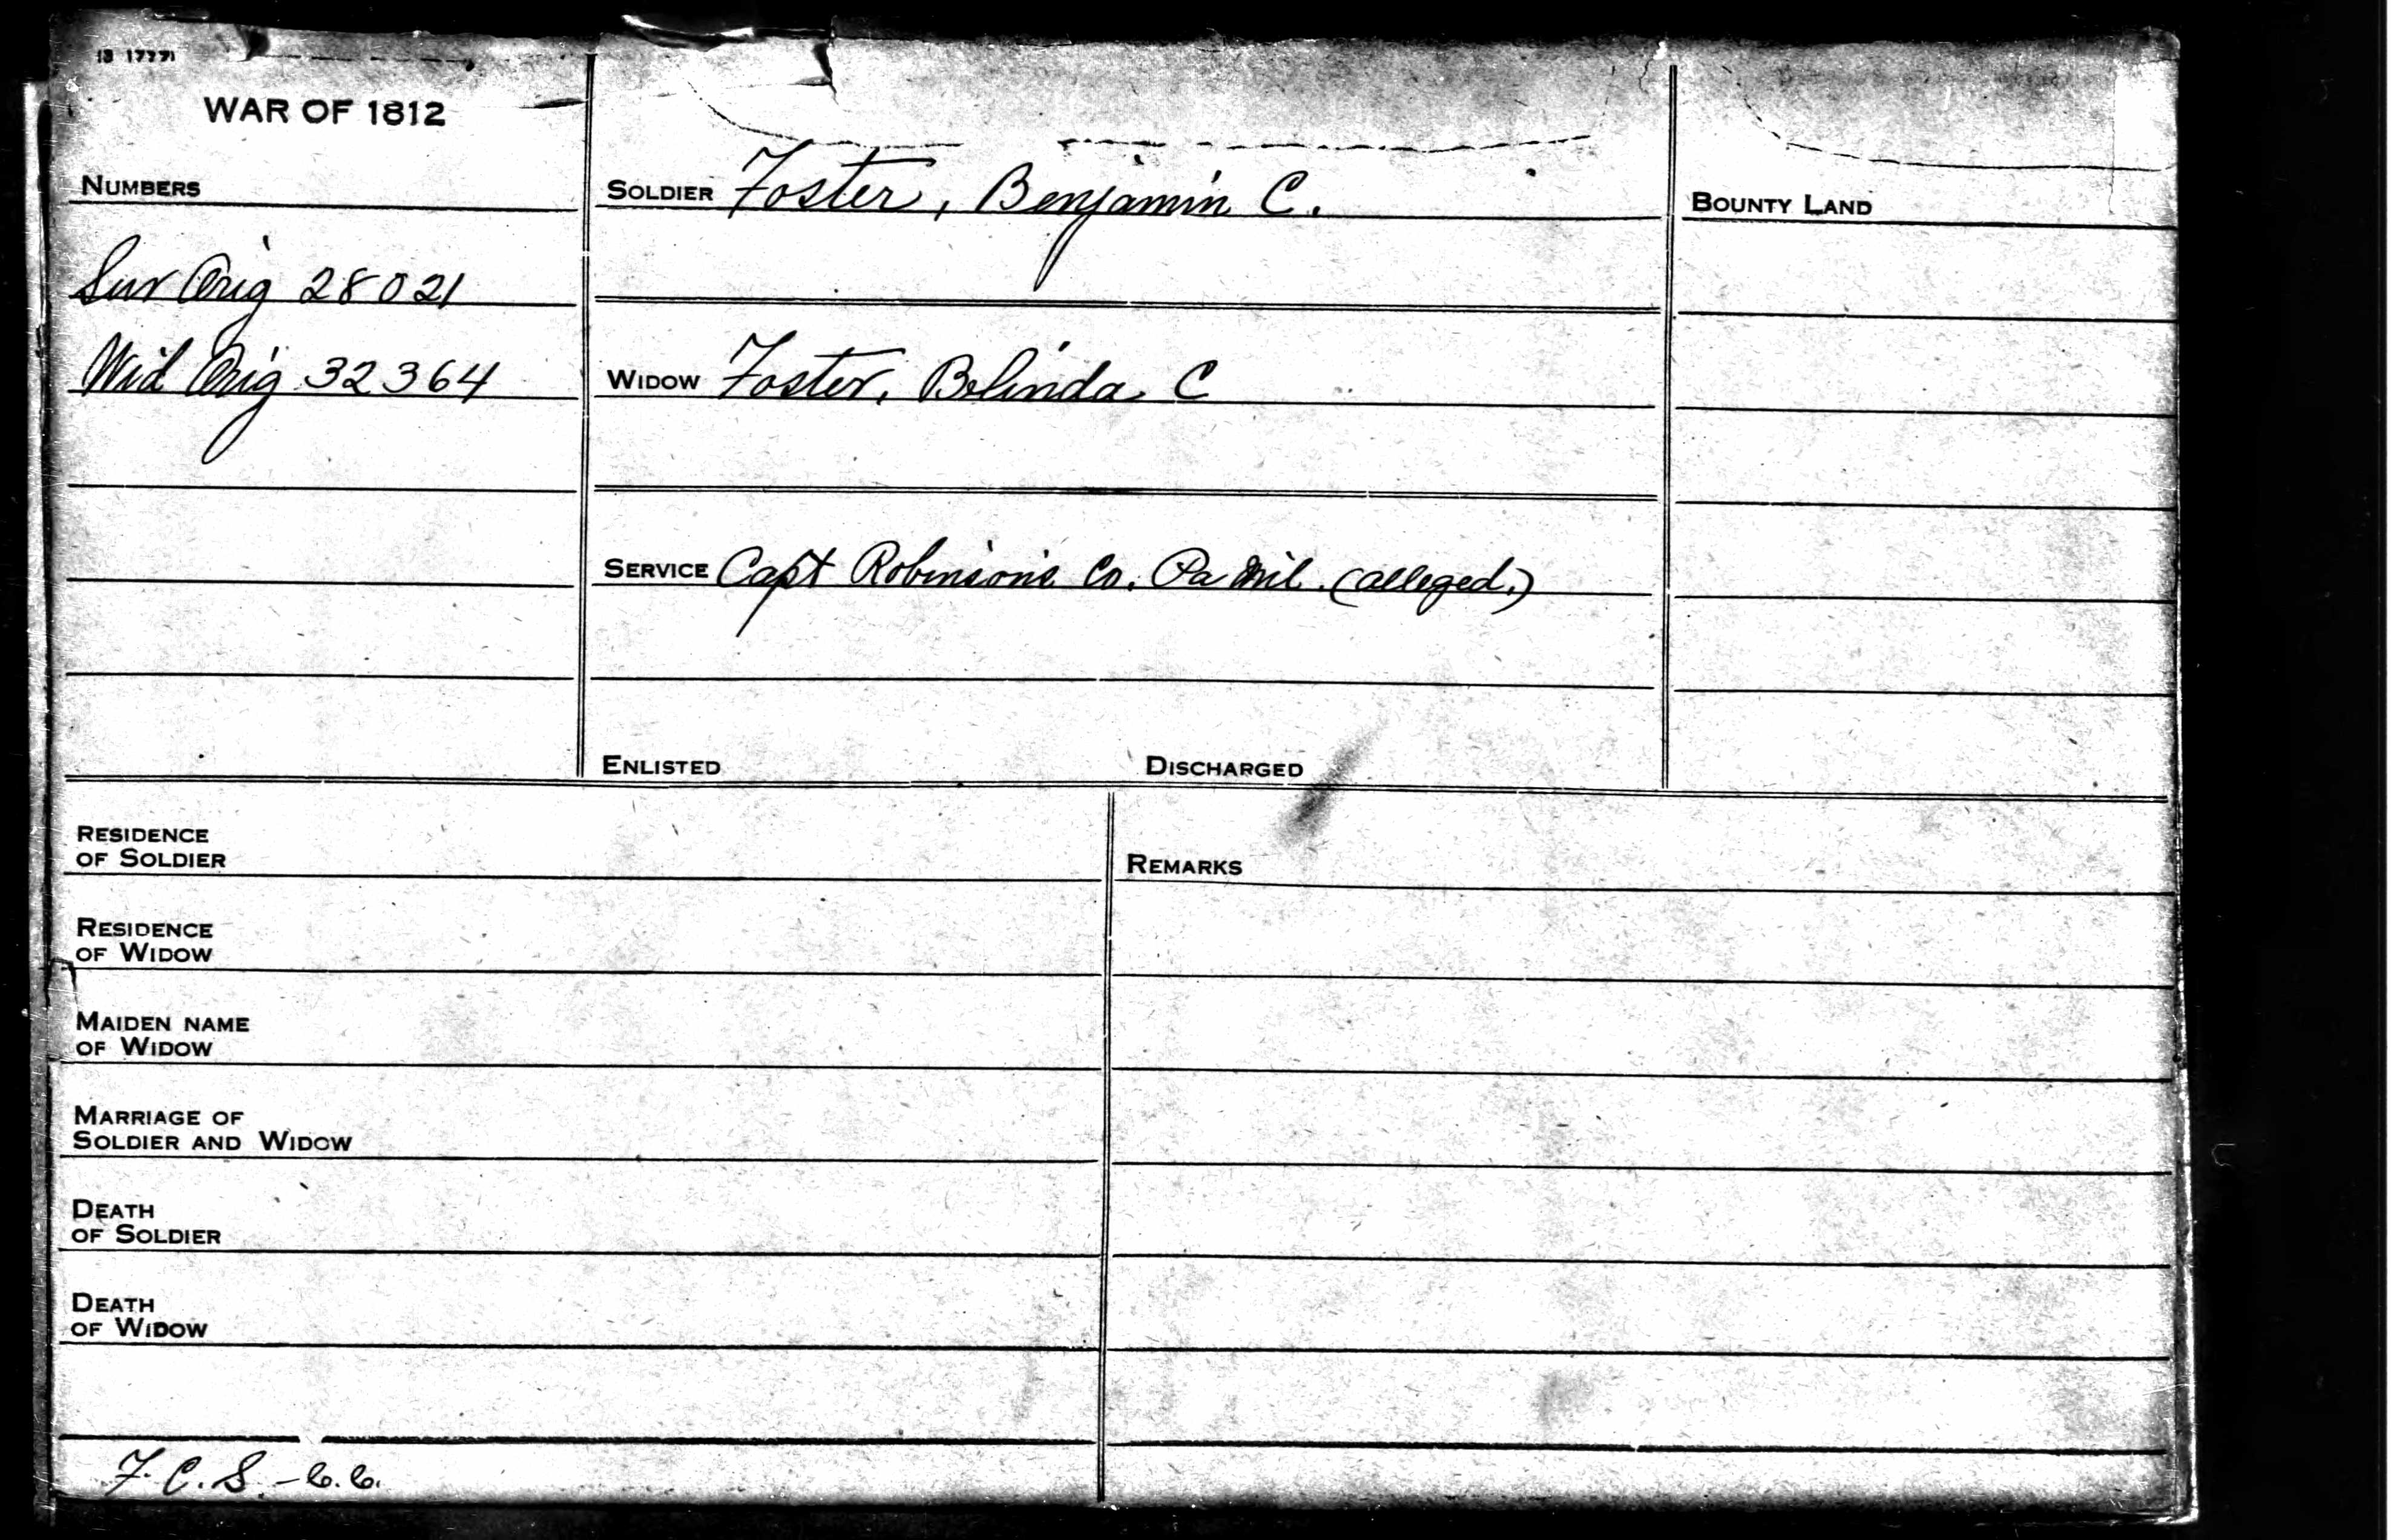 WAR OF 1812
NUMBERS
Sur Orig 28021
Wid Orig 32364
SOLDIER Foster, Benjamin C.
WIDOW Foster, Belinda C
SERVICE Capt Robinson's Co. Pa Mil. (alleged.)
ENLISTED DISCHARGED
BOUNTY LAND
RESIDENCE
OF SOLDIER
RESIDENCE
OF WIDOW
MAIDEN NAME
OF WIDOW
MARRIAGE OF
SOLDIER AND WIDOW
DEATH
OF SOLDIER
DEATH
OF WIDOW
REMARKS
F. C. S. -